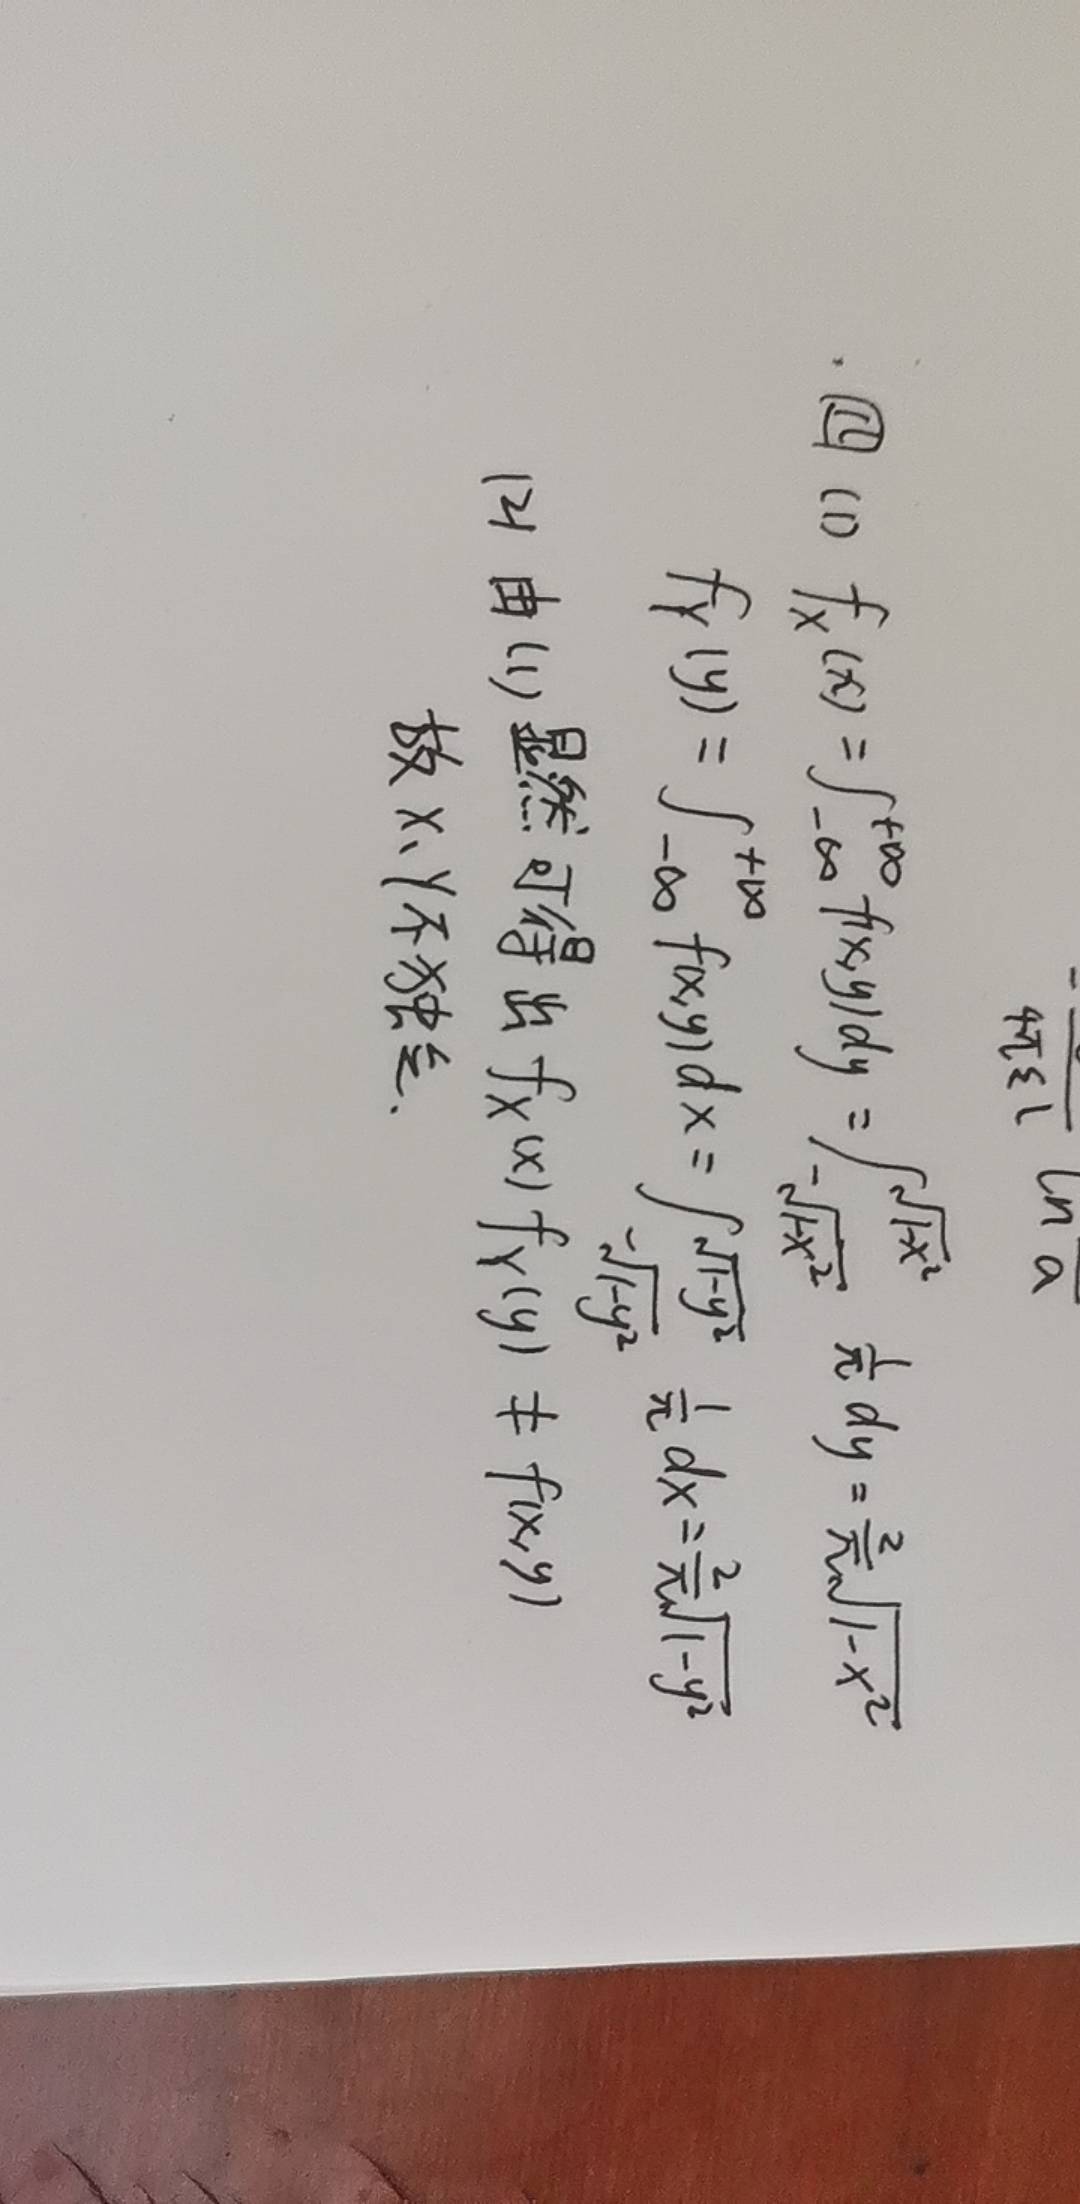 4πε l ln a
四 (1) f_X(x) = ∫_{-∞}^{+∞} f(x,y)dy = ∫_{-√(1-x²)}^{√(1-x²)} 1/π dy = 2/π √(1-x²)
f_Y(y) = ∫_{-∞}^{+∞} f(x,y)dx = ∫_{-√(1-y²)}^{√(1-y²)} 1/π dx = 2/π √(1-y²)
(2) 由(1)显然可得出 f_X(x) f_Y(y) ≠ f(x,y)
故 X、Y不独立.